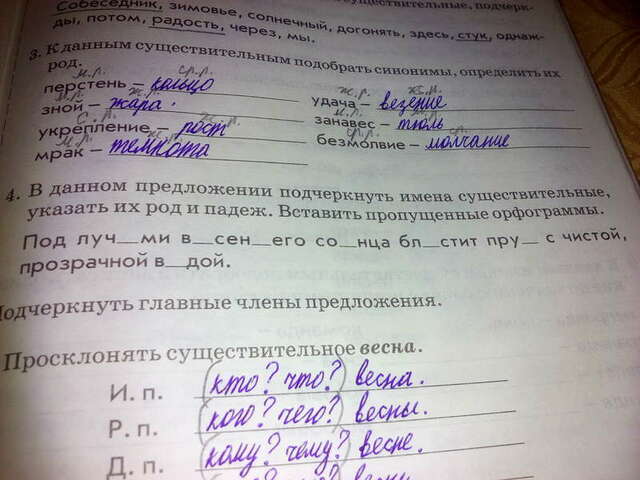 Собеседник, зимовье, солнечный, догонять, здесь, стук, однаж-
ды, потом, радость, через, мы.
3. К данным существительным подобрать синонимы, определить их
род.
м.р. ср.р.
перстень – кольцо
ж.р.
удача – везение
м.р. ж.р.
зной – жара.
м.р.
занавес – тюль
с.р.
укрепление рост
ср.р. ср.
безмолвие – молчание
м.р. ж.р.
мрак – темнота
4. В данном предложении подчеркнуть имена существительные,
указать их род и падеж. Вставить пропущенные орфограммы.
Под луч__ми в__сен__его со__нца бл__стит пру__ с чистой,
прозрачной в__дой.
Подчеркнуть главные члены предложения.
Просклонять существительное весна.
И. п. (кто? что?) весна.
Р. п. (кого? чего?) весны.
Д. п. (кому? чему?) весне.